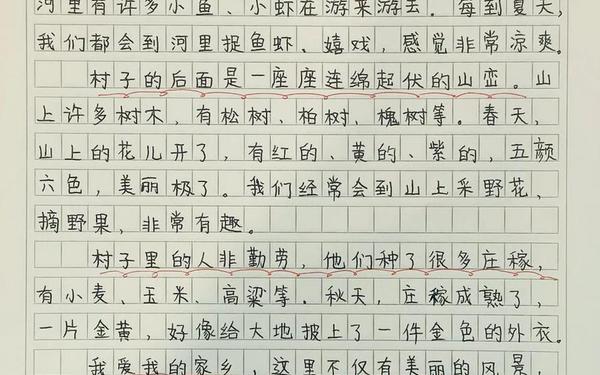 河里有许多小鱼、小虾在游来游去。每到夏天，
我们都会到河里捉鱼虾、嬉戏，感觉非常凉爽。
村子的后面是一座座连绵起伏的山峦。山
上许多树木，有松树、柏树、槐树等。春天，
山上的花儿开了，有红的、黄的、紫的，五颜
六色，美丽极了。我们经常会到山上采野花，
摘野果，非常有趣。
村子里的人非勤劳，他们种了很多庄稼，
有小麦、玉米、高粱等。秋天，庄稼成熟了，
一片金黄，好像给大地披上了一件金色的外衣。
我爱我的家乡，这里不仅有美丽的风景，